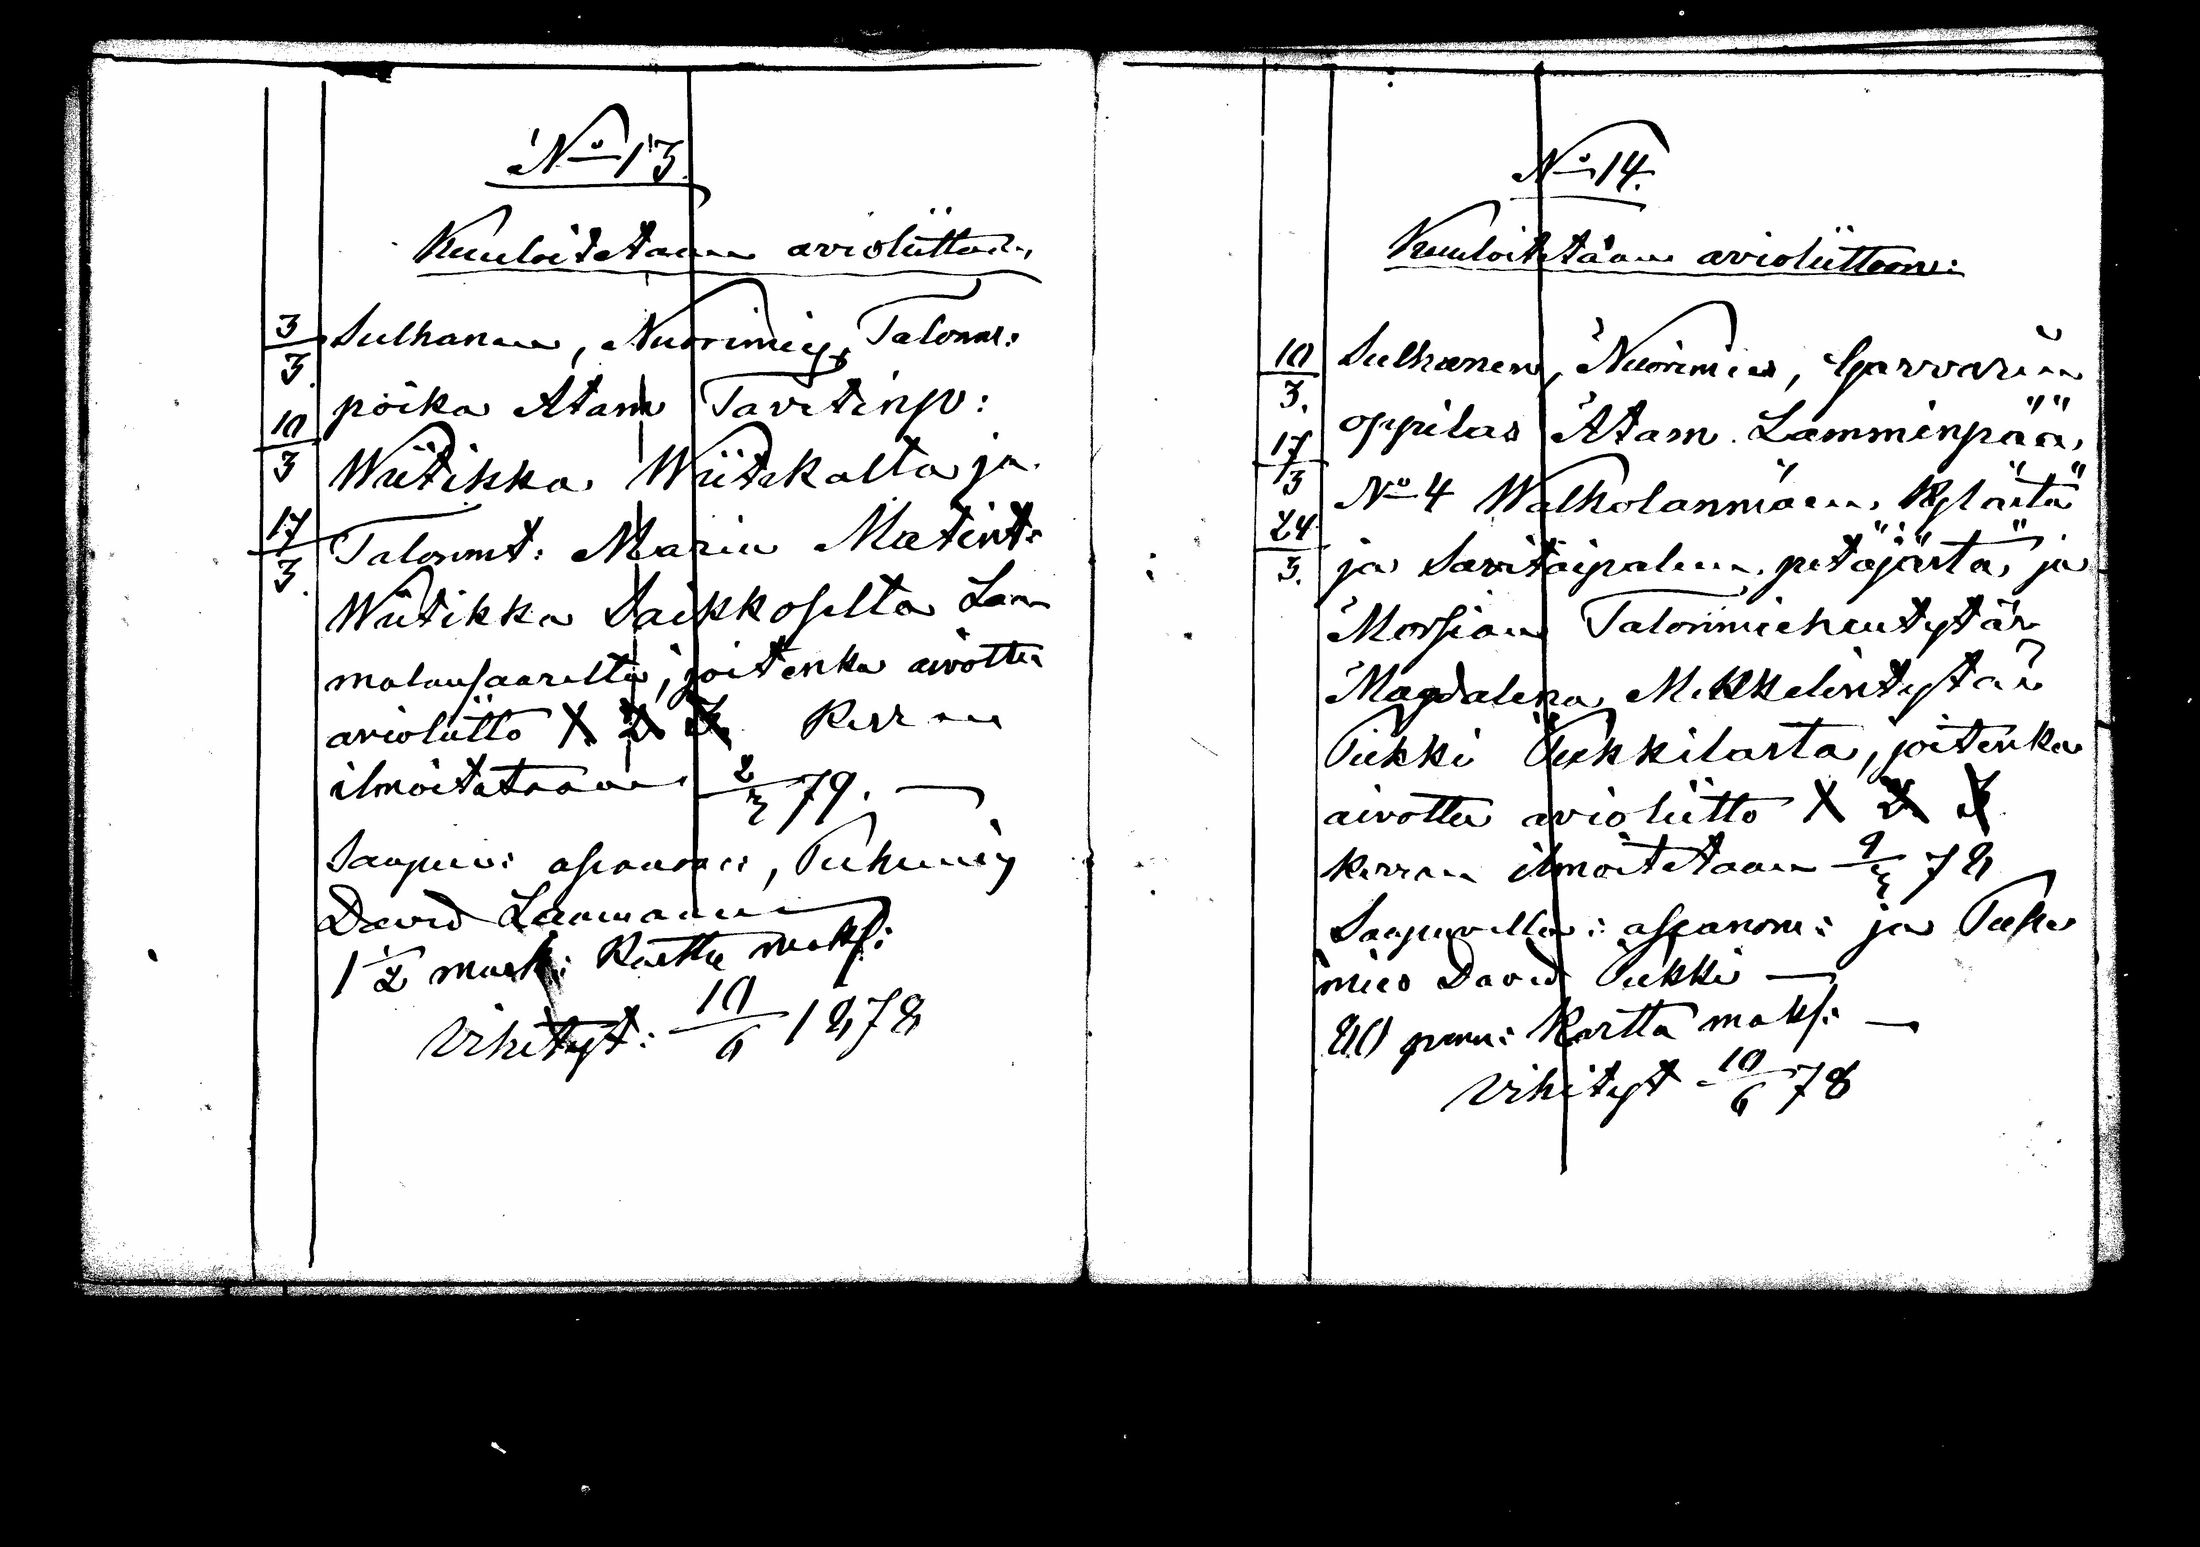 No 13.
Kuuloitetaan avioliittoon,
3/3. Sulhanen, Nuorimies, Talonm:
poika Atam Tavetinp:
10/3 Wiitikka Wiitikalta ja
17/3. Talonmt: Maria Matint:
Wiitikka Saikkoselta Lam
malansaarelta, joitenka aivottu
avioliitto X 2 3 Kerran
ilmoitetaan 2/3 79. —
Saapuv: asianom:, Puhemies
David Laumanen
1 1/2 mark: Kartta maksi
Vihityt: 10/6 1878
No 14.
Kuuloitetaan avioliittoon:
10/3. Sulhanen, Nuorimies, Garvarin
17/3 oppilas Atam Lamminpää,
No 4 Walkolanmäen, Kylästä
24/3. ja Savitaipaleen, pitäjästä, ja
Morsian Talonmiehentytär
Magdalena Mikkelintytär
Pukki Pukkilasta, joitenka
aivottu avioliitto X 2 3
kerran ilmoitetaan 9/3 78
Saapuvilla: asianom: ja Puhe
mies David Pukki —
80 pen: Kartta maksi —
Vihityt 10/6 78